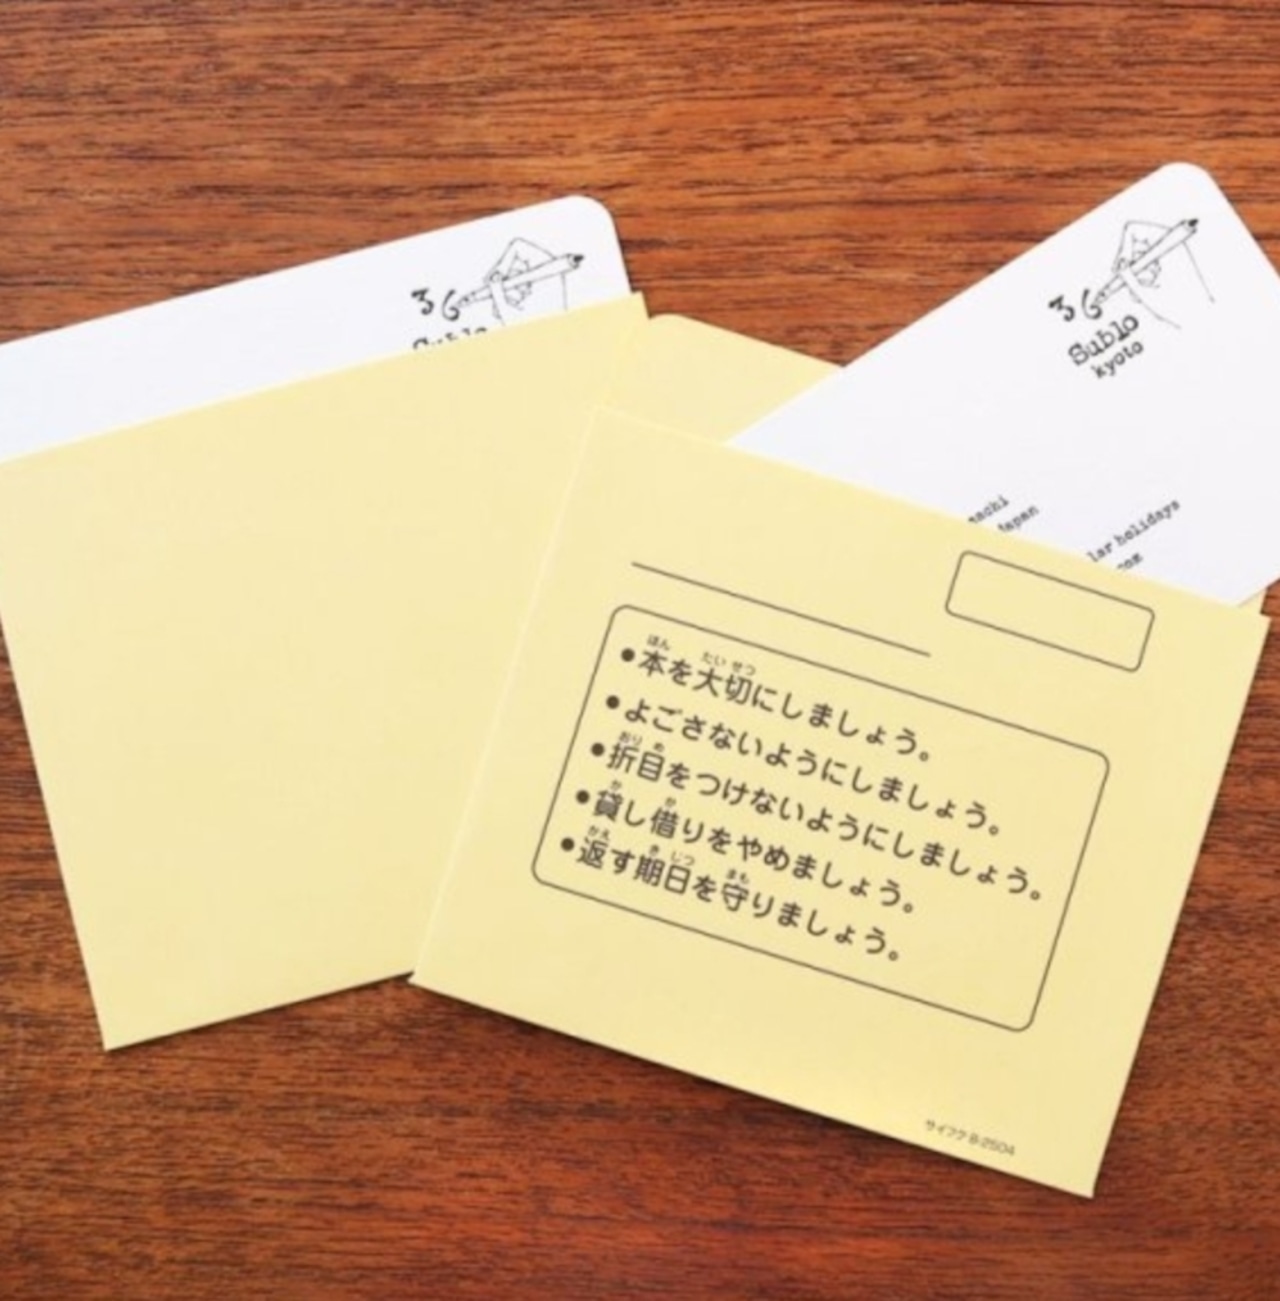 36
Sublo
36
Sublo
kyoto
achi
apan
lar holidays
com
●本を大切にしましょう。
●よごさないようにしましょう。
●折目をつけないようにしましょう。
●貸し借りをやめましょう。
●返す期日を守りましょう。
サイフク B-2504